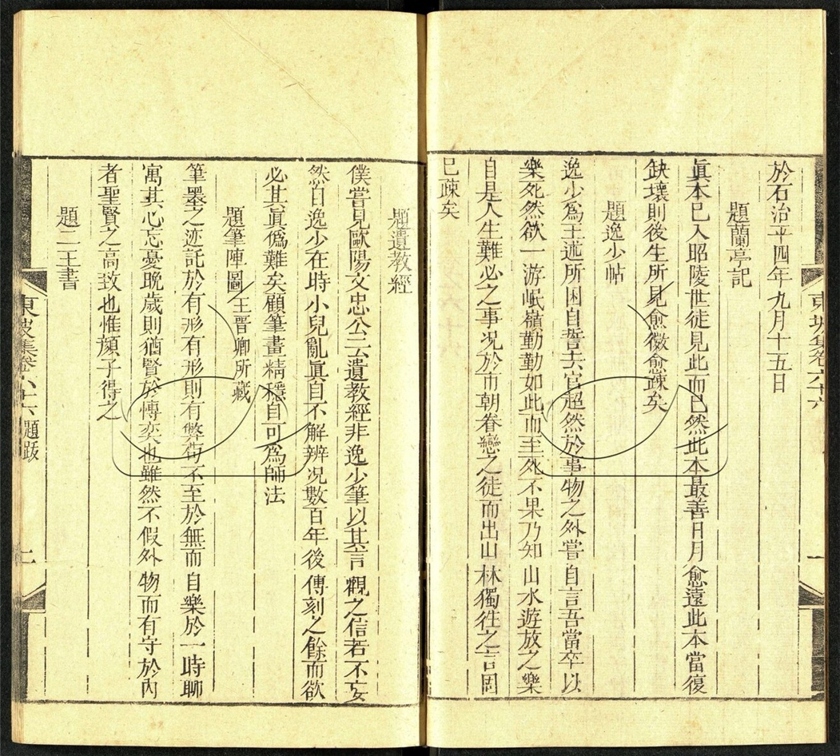 於石治平四年九月十五日
題蘭亭記
眞本已入昭陵世徒見此而已然此本最善日月愈遠此本當復
缺壞則後生所見愈微愈疎矣
題逸少帖
逸少爲王述所困自誓去官超然於事物之外嘗自言吾當卒以
樂死然欲一游岷嶺勤勤如此而至死不果乃知山水遊放之樂
自是人生難必之事况於市朝眷戀之徒而出山林獨徃之言固
已疎矣
東坡集卷六十六
一
題遺教經
僕嘗見歐陽文忠公云遺教經非逸少筆以其言觀之信若不妄
然自逸少在時小兒亂眞自不解辨况數百年後傳刻之餘而欲
必其眞僞難矣顧筆畫精穩自可爲師法
題筆陣圖王晉卿所藏
筆墨之迹託於有形有形則有弊苟不至於無而自樂於一時聊
寓其心忘憂晚歲則猶賢於愽奕也雖然不假外物而有守於內
者聖賢之高致也惟顏子得之
題二王書
東坡集卷六十六 題跋
二